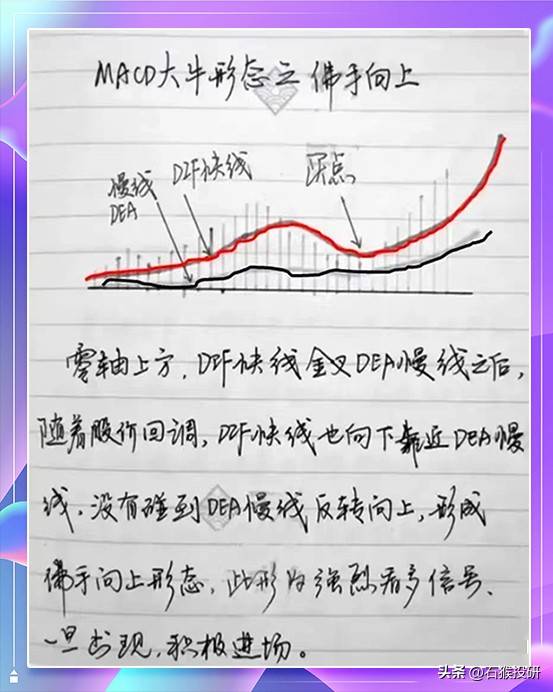 MACD大牛形态之佛手向上
慢线
DEA
DIF快线
买点
零轴上方，DIF快线金叉DEA慢线之后，
随着股价回调，DIF快线也向下靠近DEA慢
线，没有碰到DEA慢线反转向上，形成
佛手向上形态，此形为强烈看多信号、
一旦出现，积极进场。
头条 @石猴投研